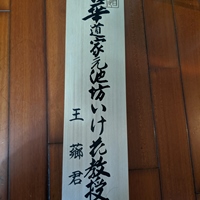 華道家元池坊いけ花教授
王薌君